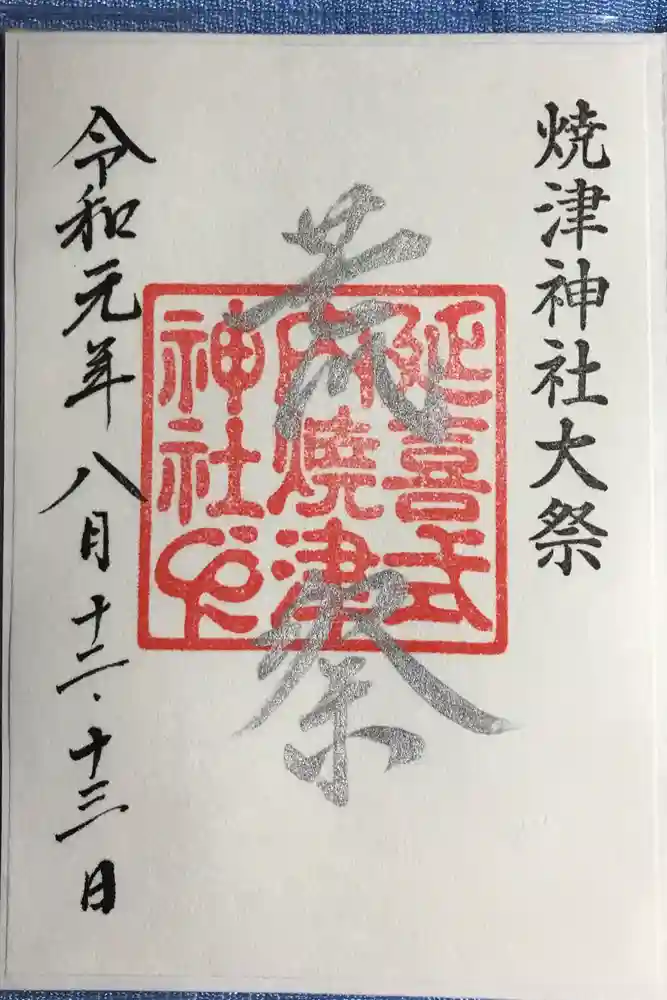 焼津神社大祭
荒祭
延喜式
内燒津
神社印
令和元年八月十二・十三日